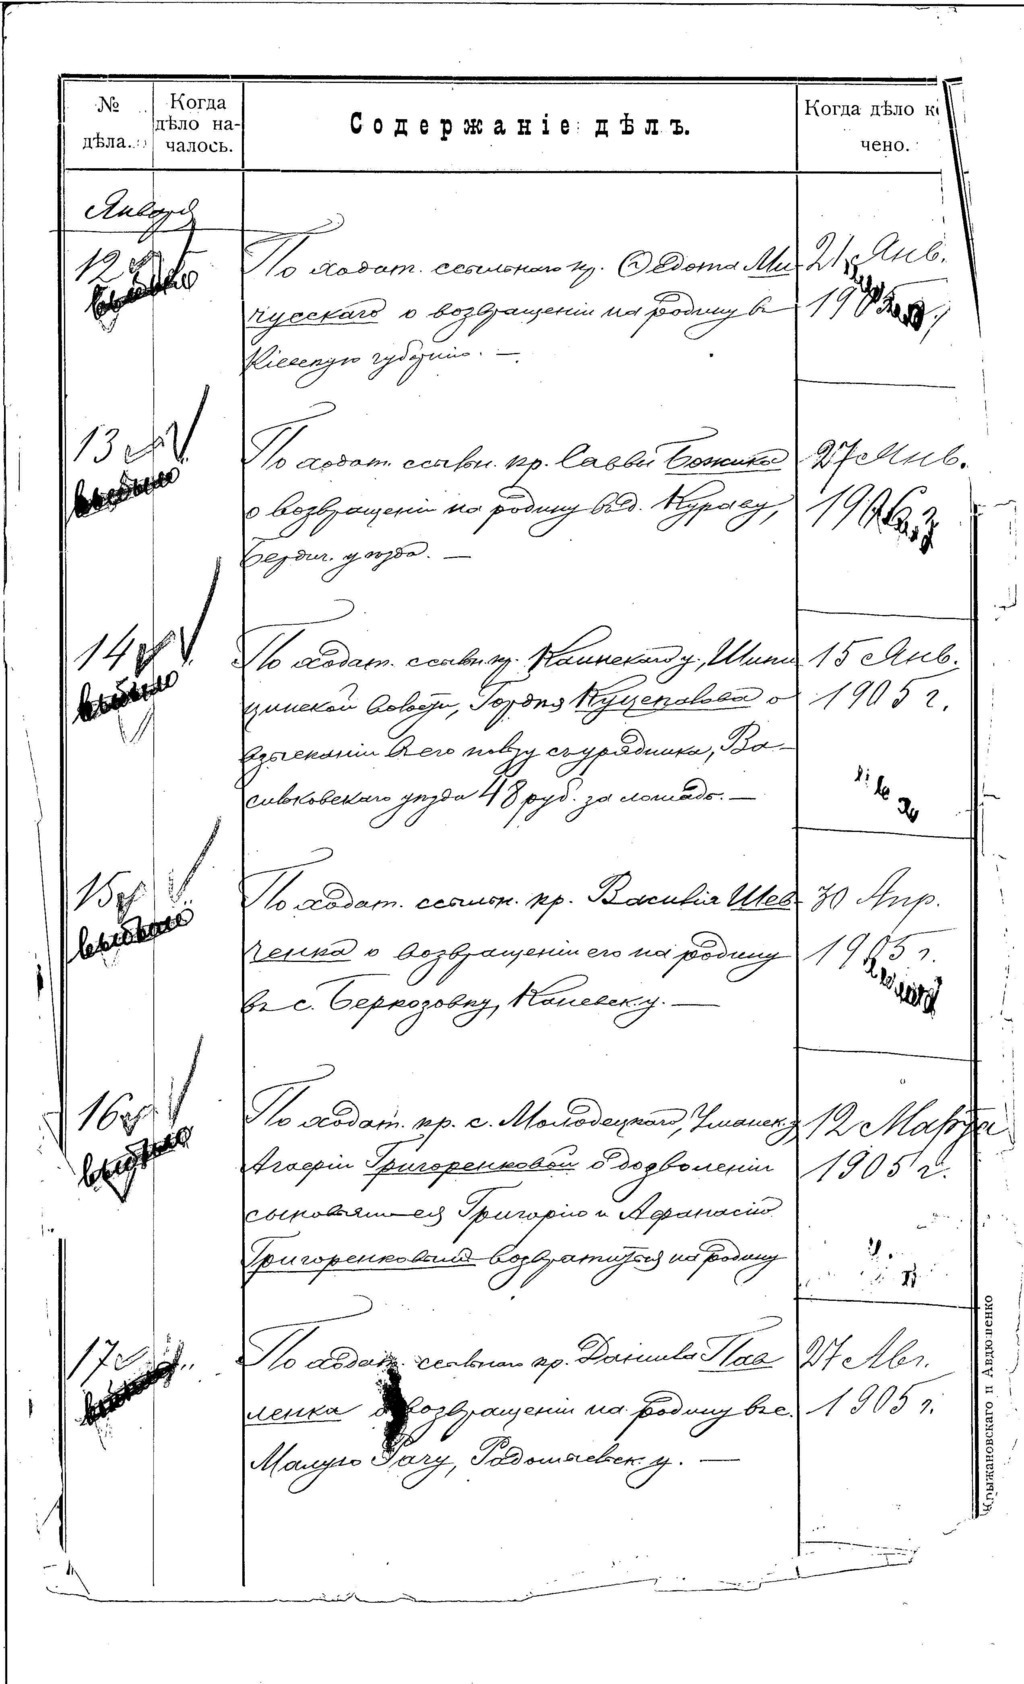 № дѣла.
Когда дѣло началось.
Содержаніе дѣлъ.
Когда дѣло к
чено.
Января
12
По ходат. ссыльнаго кр. Ѳедота Ми-
чусскаго о возвращеніи на родину въ
Кіевскую губернію. —
21 Янв.
1905
13
По ходат. ссыльн. кр. Саввы Божика
о возвращеніи на родину въ д. Жураву,
Бердич. уѣзда. —
27 Янв.
190
14
По ходат. ссыльн. кр. Каинскаго у., Шипи
цинской волости, Гордѣя Куценалова о
взысканіи въ его пользу съ урядника, Ва-
сильковскаго уѣзда 48 руб. за лошадь. —
15 Янв.
1905 г.
15
По ходат. ссыльн. кр. Василія Шев-
ченка о возвращеніи его на родину
въ с. Беркозовку, Каневск. у. —
30 Апр.
1905 г.
16
По ходат. кр. с. Молодецкаго, Уманск. у.
Григоренковой о дозволеніи
сыновьямъ ея Григорію и Афанасію
Григоренковымъ возвратиться на родину
12 Марта
1905 г.
17
По ходат. ссыльнаго кр. Даніила Пав
ленка о возвращеніи на родину въ с.
Малую Рачу, Радомысльск. у. —
27 Авг.
1905 г.
Крыжановскаго и Авдюшенко